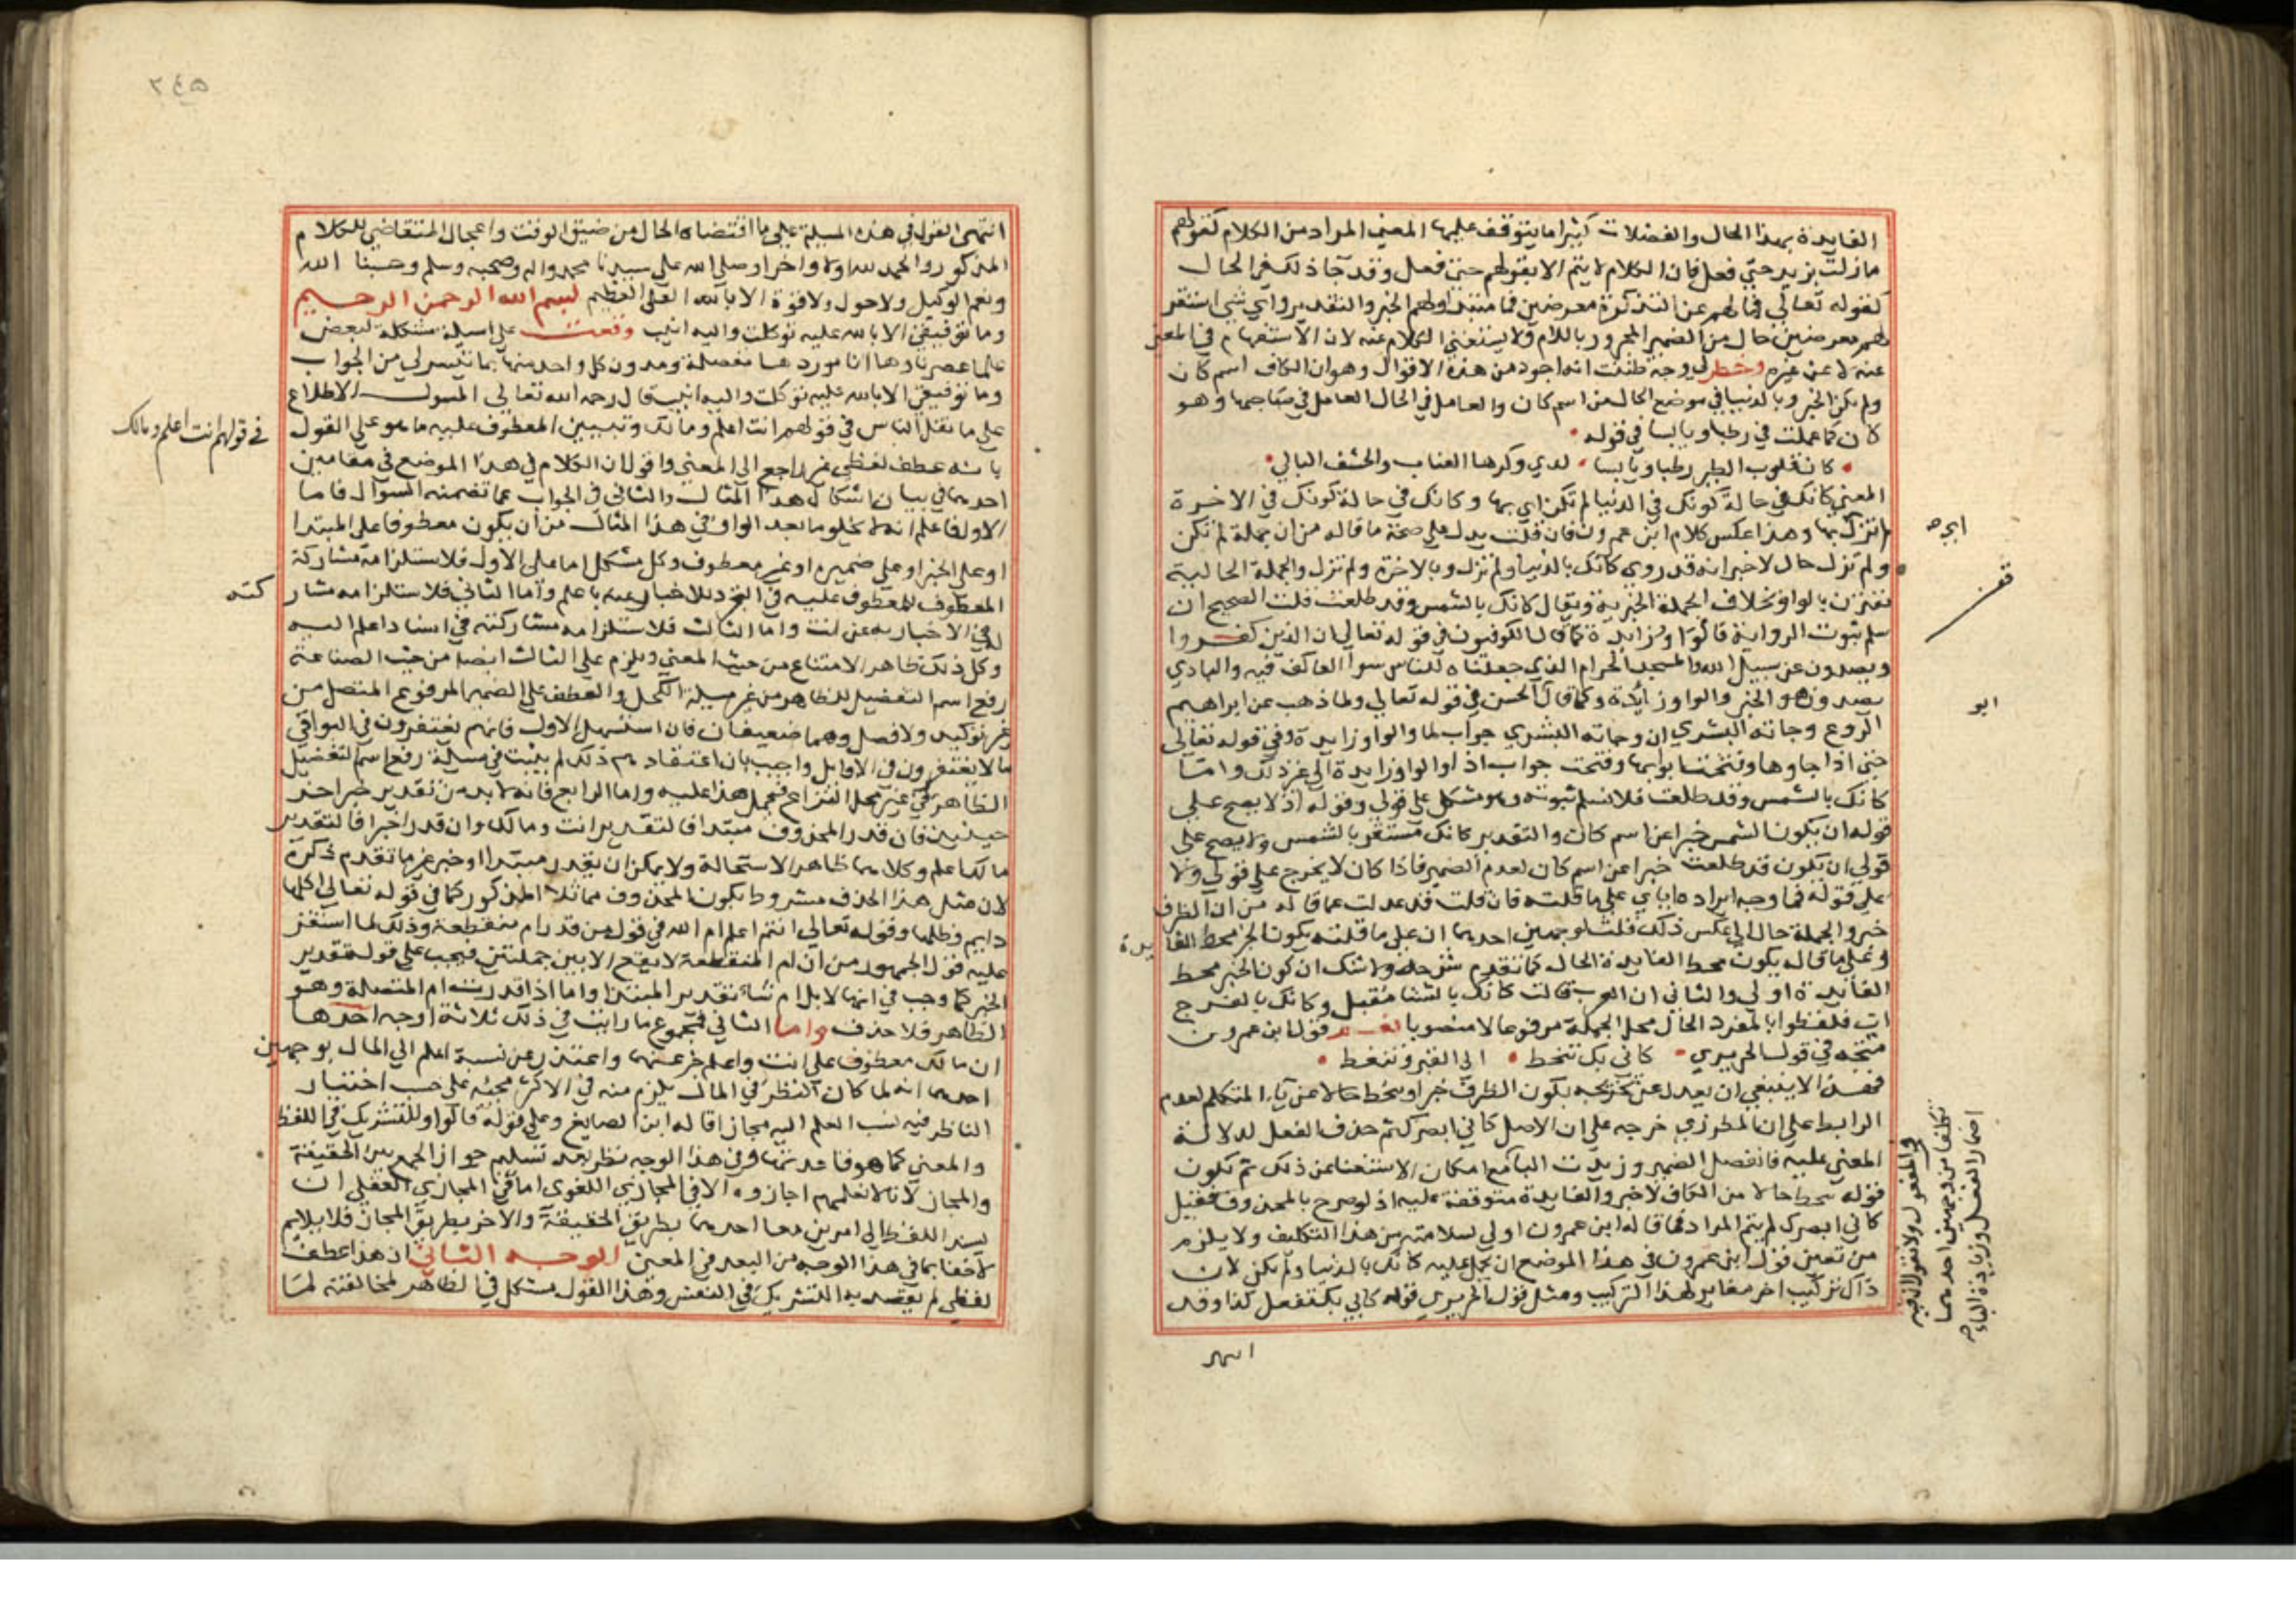 الفايدة بهذا الحال والفضلات كثيرا ما يتوقف عليها المعني المراد من الكلام كقولهم
مازلت بزيد حتي فعل فان الكلام لا يتم الا بقولهم حتي فعل وقد جآ ذلك في الحال
كقوله تعالي فما لهم عن التذكرة معرضين فما مبتدا ولهم الخبر والتقدير واي شي استقر
لهم معرضين حال من الضمير المجرور باللام ولا يستغني الكلام عنه لان الاستفهام في المعني
عنه لا عن غيره وخطر لي وجه ظننت انه اجود من هذه الاقوال وهو ان الكاف اسم كان
ولم تكن الخبر وبالدنيا في موضع الحال من اسم كان والعامل في الحال العامل في صاحبها وهو
كان كما عملت في رطبا ويابسا في قوله
كان قلوب الطير رطبا ويابسا لدي وكرها العناب والحشف البالي
المعني كانك في حالة كونك في الدنيا لم تكن اي بها وكانك في حالة كونك في الاخرة
لم تزل بها وهذا عكس كلام ابن عمرون فان قلت يدل علي صحة ما قاله من ان جملة لم تكن
ولم تزل حال لا خبر انه قد روي كانك بالدنيا ولم تزل وبالاخرة ولم تزل والجملة الحالية
تقترن بالواو بخلاف الجملة الخبرية ويقال كانك بالشمس وقد طلعت قلت الصحيح ان
سلم ثبوت الرواية قالوا و زايدة كما قال الكوفيون في قوله تعالي ان الذين كفروا
ويصدون عن سبيل الله والمسجد الحرام الذي جعلناه للناس سوا العاكف فيه والبادي
يصدون هو الخبر والواو زايدة وكما قال الحسن في قوله تعالي ولما ذهب عن ابراهيم
الروع وجاته البشري ان وجاته البشري جواب لما والواو زايدة وفي قوله تعالي
حتي اذا جاوها وفتحت ابوابها وفتحت جواب اذا والواو زايدة الي غير ذلك واما
كانك بالشمس وقد طلعت فلا نسلم ثبوته وهو مشكل علي قولي وقوله اذ لا يصح علي
قوله ان يكون الشمس خبرا عن اسم كان والتقدير كانك مستقر بالشمس ولا يصح علي
قولي ان يكون قد طلعت خبرا عن اسم كان لعدم الضمير فاذا كان لا يخرج علي قولي ولا
علي قوله فما وجه ايراده اياي علي ما قلته فان قلت قد عدلت عما قاله من ان الظرف
خبر والجملة حال الي عكس ذلك قلت لوجهين احدهما ان علي ما قلته يكون الخبر محط الفا
يدة
وعلي ما قاله يكون محط الفايدة الحال كما تقدم شرحه ولا شك ان كون الخبر محط
الفايدة اولي والثاني ان العرب قالت كانك بالشتا مقبل وكانك بالفرج
ات فلفظوا بالمفرد الحال محل الجملة مرفوعا لا منصوبا نعم قول ابن عمرون
متجه في قول الحريري كاني بك تنحط الي القبر وتنغط
فهذا لا ينبغي ان يعدل عن تخريجه بكون الظرف خبرا وتنحط حالا عن ياء المتكلم لعدم
الرابط علي ان المطرزي خرجه علي ان الاصل كاني ابصرك ثم حذف الفعل لدلالة
المعني عليه فانفصل الضمير وزيدت البآ مع امكان الاستغنا عن ذلك ثم تكون
قوله تنحط حالا من الكاف لا خبر والفايدة متوقفة عليه اذ لو صرح بالمحذوف فقيل
كاني ابصرك لم يتم المراد فما قاله ابن عمرون اولي لسلامته من هذا التكليف ولا يلزم
من تعين قول ابن عمرون في هذا الموضع ان يحمل عليه كانك بالدنيا ولم تكن لان
ذاك تركيب اخر مغاير لهذا التركيب ومثل قول الحريري قوله كاني بك تفعل كذا وقد
انتهي
ابو
٢٤٥
انتهي القول في هذه المسيلة علي ما اقتضاه الحال من ضيق الوقت واعجال المتقاضي للكلام
المذكور والحمد لله اولا واخرا وصلي الله علي سيدنا محمد واله وصحبه وسلم وحسبنا الله
ونعم الوكيل ولا حول ولا قوة الا بالله العلي العظيم بسم الله الرحمن الرحيم
وما توفيقي الا بالله عليه توكلت واليه انيب وقعت علي اسيلة مشكلة لبعض
علما عصرنا وها انا موردها مفصلة ومدون كل واحد منها بما تيسر لي من الجواب
وما توفيقي الا بالله عليه توكلت واليه انيب قال رحمه الله تعالي المسول الاطلاع
علي ما نقل الناس في قولهم انت اعلم ومالك وتبيين المعطوف عليه ما هو علي القول
في قولهم انت اعلم ومالك
بانه عطف لفظي غير راجع الي المعني واقول ان الكلام في هذا الموضع في مقامين
احدهما في بيان اشكال هذا المثال والثاني في الجواب عما تضمنه السوال فاما
الاول فاعلم انه لا يخلو ما بعد الواو في هذا المثال من ان يكون معطوفا علي المبتدا
او علي الخبر او علي ضميره او غير معطوف وكل مشكل اما علي الاول فلاستلزامه مشاركة
المعطوف للمعطوف عليه في التجرد للاخبار عنه باعلم واما الثاني فلاستلزامه مشار
كته
له في الاخبار به عن انت واما الثالث فلاستلزامه مشاركته في اسناد اعلم اليه
وكل ذلك ظاهر الامتناع من حيث المعني ويلزم علي الثالث ايضا من حيث الصناعة
رفع اسم التفضيل للظاهر من غير مسيلة الكحل والعطف علي الضمير المرفوع المتصل من
غير توكيد ولا فصل وهما ضعيفان فان استسهل الاول فانهم يغتفرون في الثواني
ما لا يغتفرون في الاوايل واجيب بان اعتقادهم ذلك لم يثبت في مسيلة رفع اسم التفضيل
الظاهر في غير محل النزاع فيحمل هذا عليه واما الرابع فانه لا بد من تقدير خبر اخر
حينيذ فان قدر المحذوف مبتدا فالتقدير انت ومالك وان قدر اخبرا فالتقدير
مالك اعلم وكلاهما ظاهر الاستحالة ولا يمكن ان يقدر مبتدا او خبر غير ما تقدم ذكره
لان مثل هذا الحذف مشروط بكون المحذوف مماثلا المذكور كما في قوله تعالي اكلها
دايم وظلها وقوله تعالي انتم اعلم ام الله في قول من قدر ام منقطعة وذلك لما استقر
عليه قول الجمهور من ان ام المنقطعة لا يقع الا بين جملتين فيجب علي قوله تقدير
الخبر كما وجب في انها لابل ام شاء تقدير المبتدا واما اذا قدرت ام المتصلة وهو
الظاهر فلا حذف واما الثاني فمجموع ما رايت في ذلك ثلاثة اوجه احدها
ان مالك معطوف علي انت واعلم خبر عنهما واعتذر عن نسبة العلم الي المال بوجهين
احدهما انه لما كان النظر في المال يلزم منه في الاكثر مجيئه علي حسب اختيار
الناظر فيه نسب العلم اليه مجازا قاله ابن الصايغ وعلي قوله فالواو للتشريك في اللفظ
والمعني كما هو قاعدتها وفي هذا الوجه نظر بعد تسليم جواز الجمع بين الحقيقة
والمجاز لانا لا نعلمهم اجازوه الا في المجاز اللغوي اما في المجاز العقلي ان
يسند اللفظ الي امرين معا احدهما بطريق الحقيقة والاخر بطريق المجاز فلا يلايم
لا خفا بما في هذا الوجه من البعد في المعني الوجه الثاني ان هذا عطف
لفظي لم يقصد به التشريك في المعني وهذا القول مشكل في الظاهر لمخالفته لما